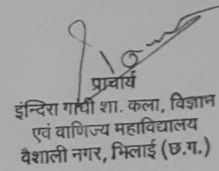 प्राचार्य
इन्दिरा गांधी शा. कला, विज्ञान
एवं वाणिज्य महाविद्यालय
वैशाली नगर, भिलाई (छ.ग.)